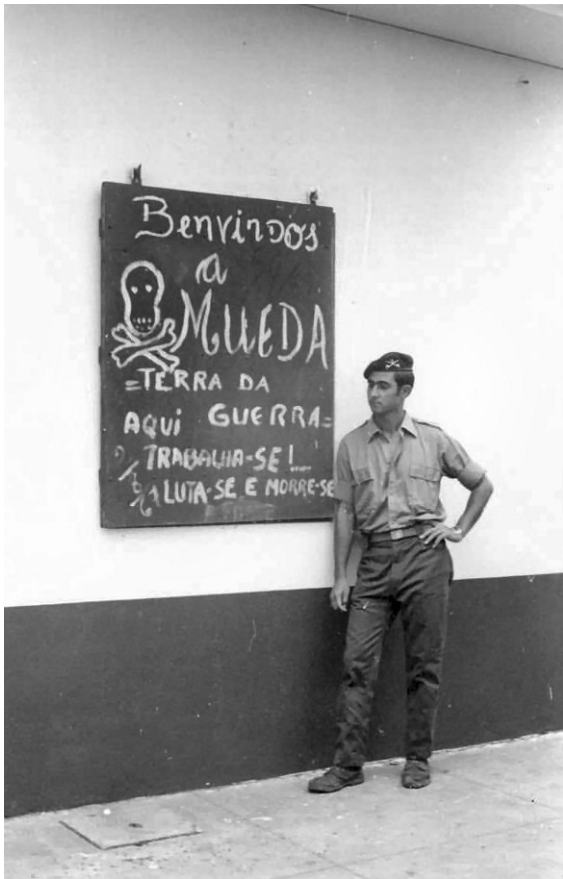 Benvindos
a
MUEDA
=TERRA DA
GUERRA=
AQUI
TRABALHA-SE!...
LUTA-SE E MORRE-SE